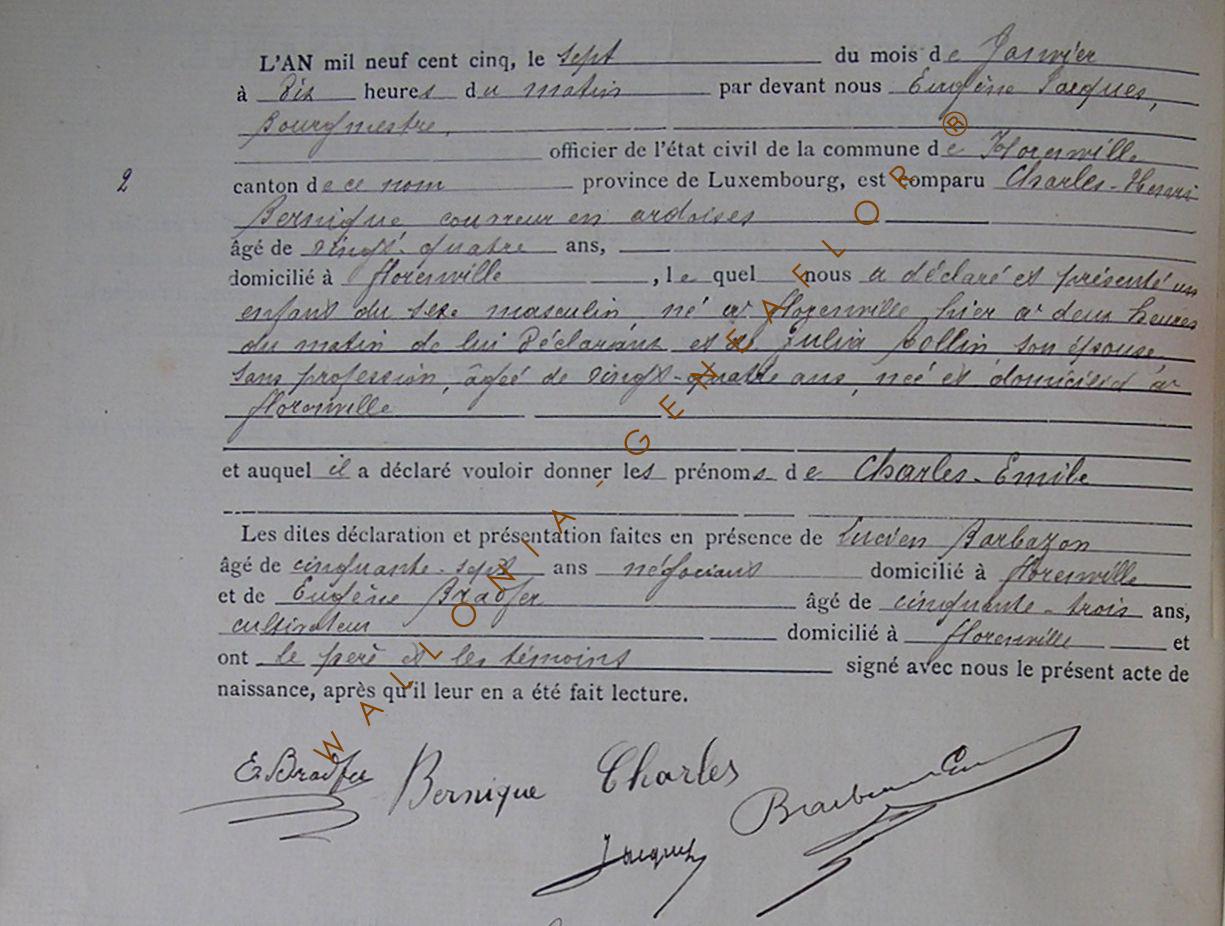 L'AN mil neuf cent cinq, le sept du mois de Janvier
à dix heures du matin par devant nous Eugène Jacques,
Bourgmestre,
officier de l'état civil de la commune de Florenville
2 canton de ce nom province de Luxembourg, est comparu Charles-Henri
Bernique, couvreur en ardoises
âgé de vingt-quatre ans,
domicilié à florenville, lequel nous a déclaré et présenté un
enfant du sexe masculin, né à florenville, hier à deux heures
du matin de lui Déclarant et de Julia Collin, son épouse,
sans profession, âgée de vingt-quatre ans, née et domiciliée à
florenville
et auquel il a déclaré vouloir donner les prénoms de Charles-Emile
Les dites déclaration et présentation faites en présence de Lucien Barbazon
âgé de cinquante-sept ans négociant domicilié à florenville
et de Eugène Bradfer âgé de cinquante-trois ans,
cultivateur domicilié à florenville et
ont le père et les témoins signé avec nous le présent acte de
naissance, après qu'il leur en a été fait lecture.
E. Bradfer Bernique Charles
Jacques
WALLONIA-GENEAFLOR®